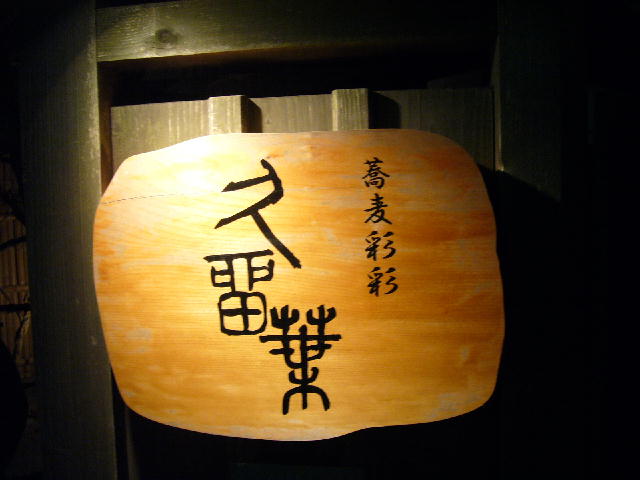 蕎麦彩彩
久留葉